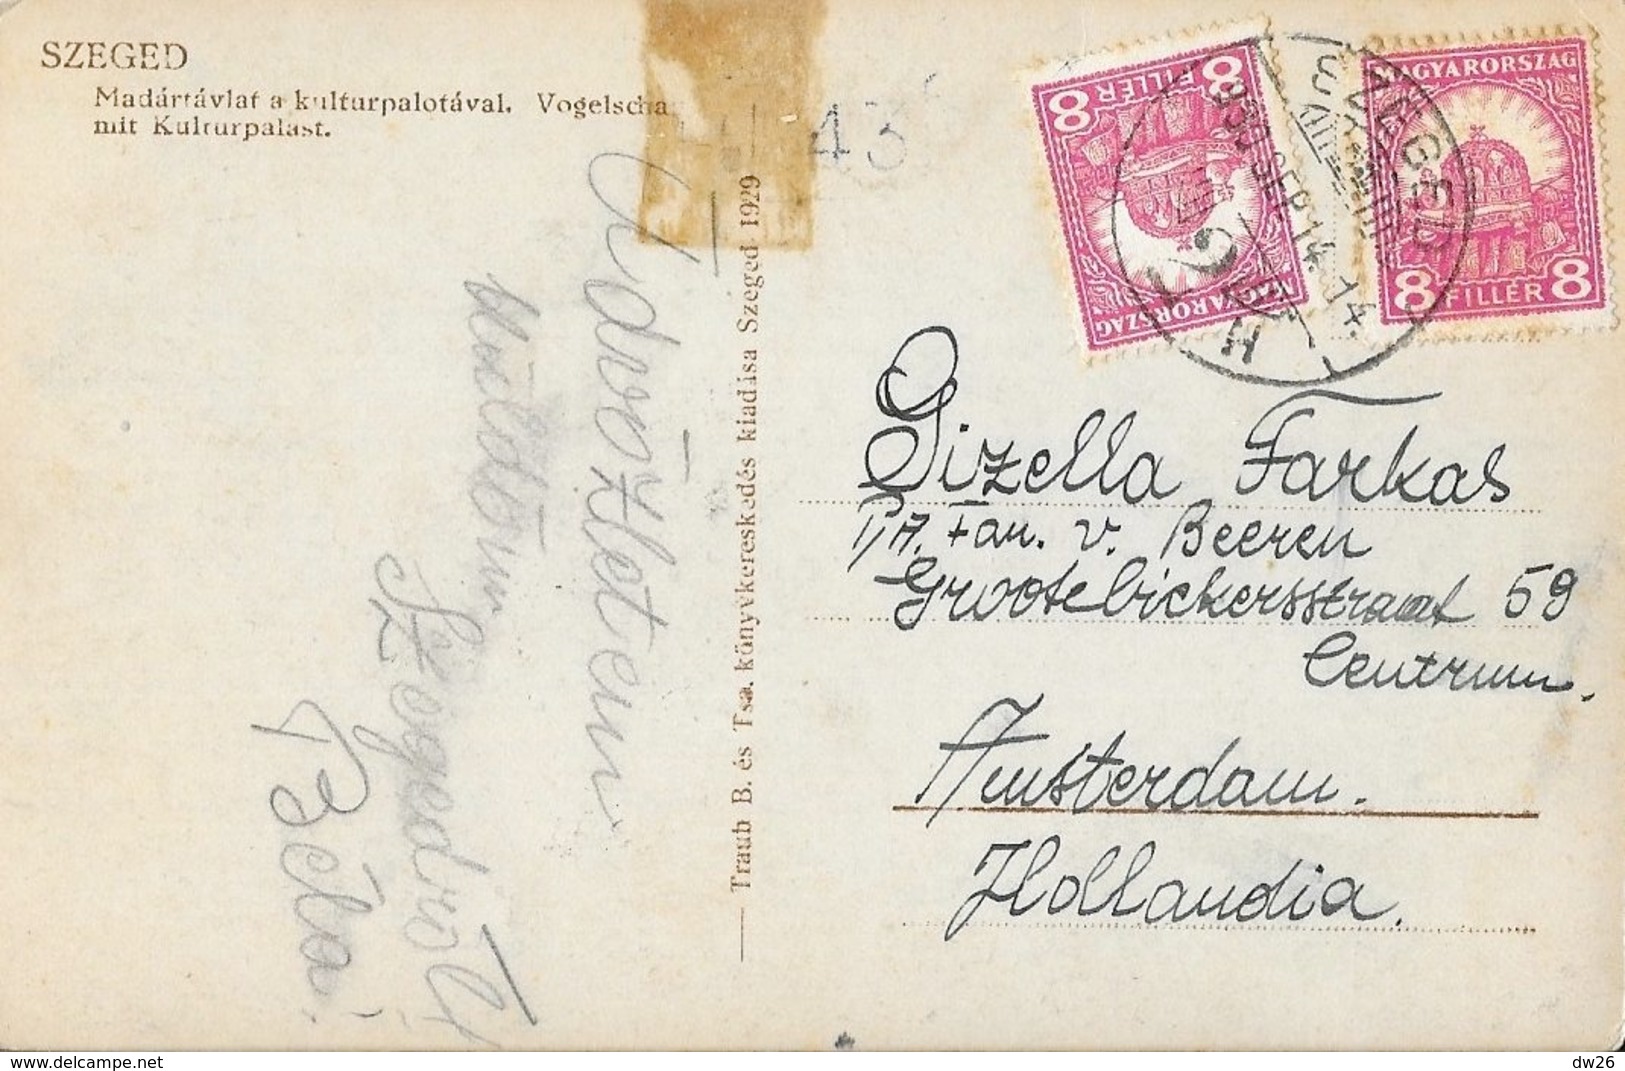 SZEGED
Madártávlat a kulturpalotával. Vogelscha
mit Kulturpalast.
43
8 FILLÉR 8
MAGYARORSZÁG
MAGYARORSZÁG
8 FILLÉR 8
SZEGED
930 SEP 14. 14.
Üdvözletem
küldöm
Szegedről
Béla
Traub B. és Tsa. könyvkereskedés kiadása Szeged 1929
Gizella Farkas
P/A. Fam. v. Beeren
Grootebickersstraat 59
Centrum.
Amsterdam.
Hollandia.
dw26